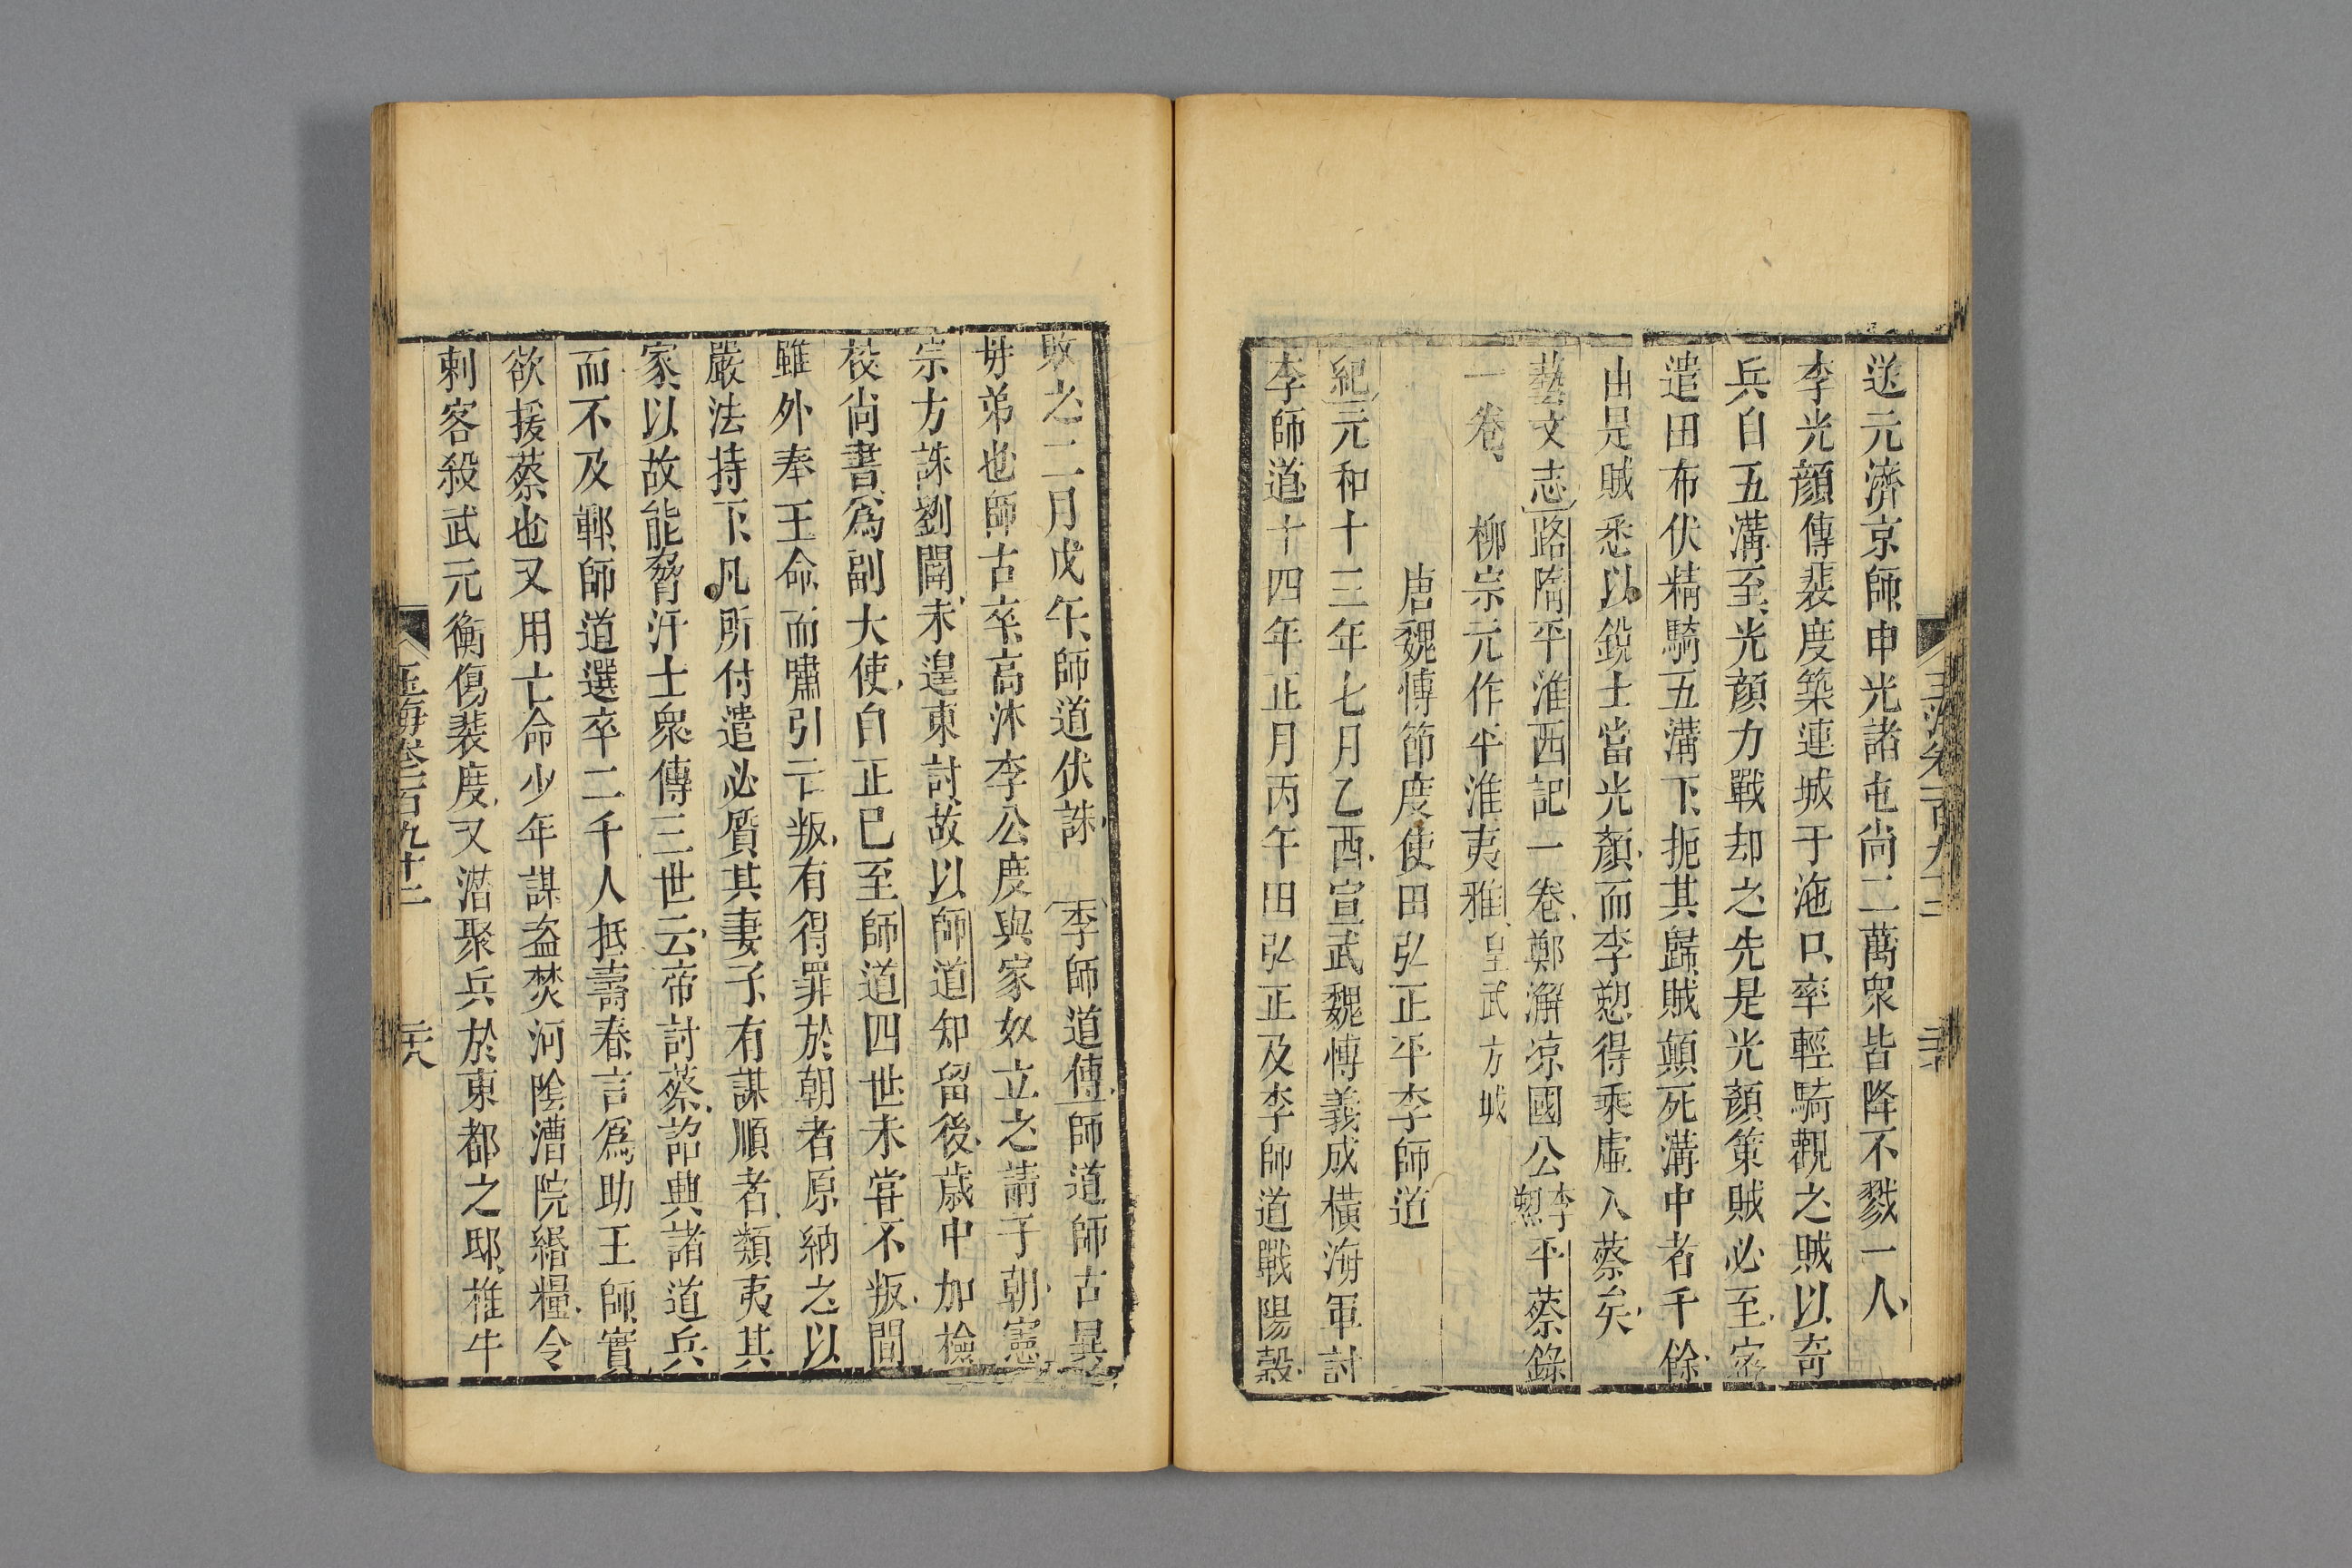 送元濟京師申光諸屯尚二萬衆皆降不戮一人
李光顔傳裴度築連城于沲口率輕騎觀之賊以奇
兵自五溝至光顔力戰却之先是光顔策賊必至密
遣田布伏精騎五溝下扼其歸賊顛死溝中者千餘
由是賊悉以銳士當光顔而李愬得乘虛入蔡矣
藝文志路隋平淮西記一卷鄭澥凉國公李愬平蔡錄
一卷 柳宗元作平淮夷雅皇武方城
唐魏博節度使田弘正平李師道
紀元和十三年七月乙酉宣武魏博義成橫海軍討
李師道十四年正月丙午田弘正及李師道戰陽穀
敗之二月戊午師道伏誅 李師道傳師道師古異
母弟也師古卒高沐李公度與家奴立之請于朝憲
宗方誅劉闢未遑東討故以師道知留後歲中加檢
校尚書爲副大使自正巳至師道四世未甞不叛間
雖外奉王命而嘯引亡叛有得罪於朝者原納之以
嚴法持下凡所付遣必質其妻子有謀順者類夷其
家以故能脅汙士衆傳三世云帝討蔡詔興諸道兵
而不及鄆師道選卒二千人抵壽春言爲助王師實
欲援蔡也又用亡命少年謀盜焚河陰漕院緡糧令
刺客殺武元衡傷裴度又潜聚兵於東都之邸椎牛
玉海卷一百九十二
二十八